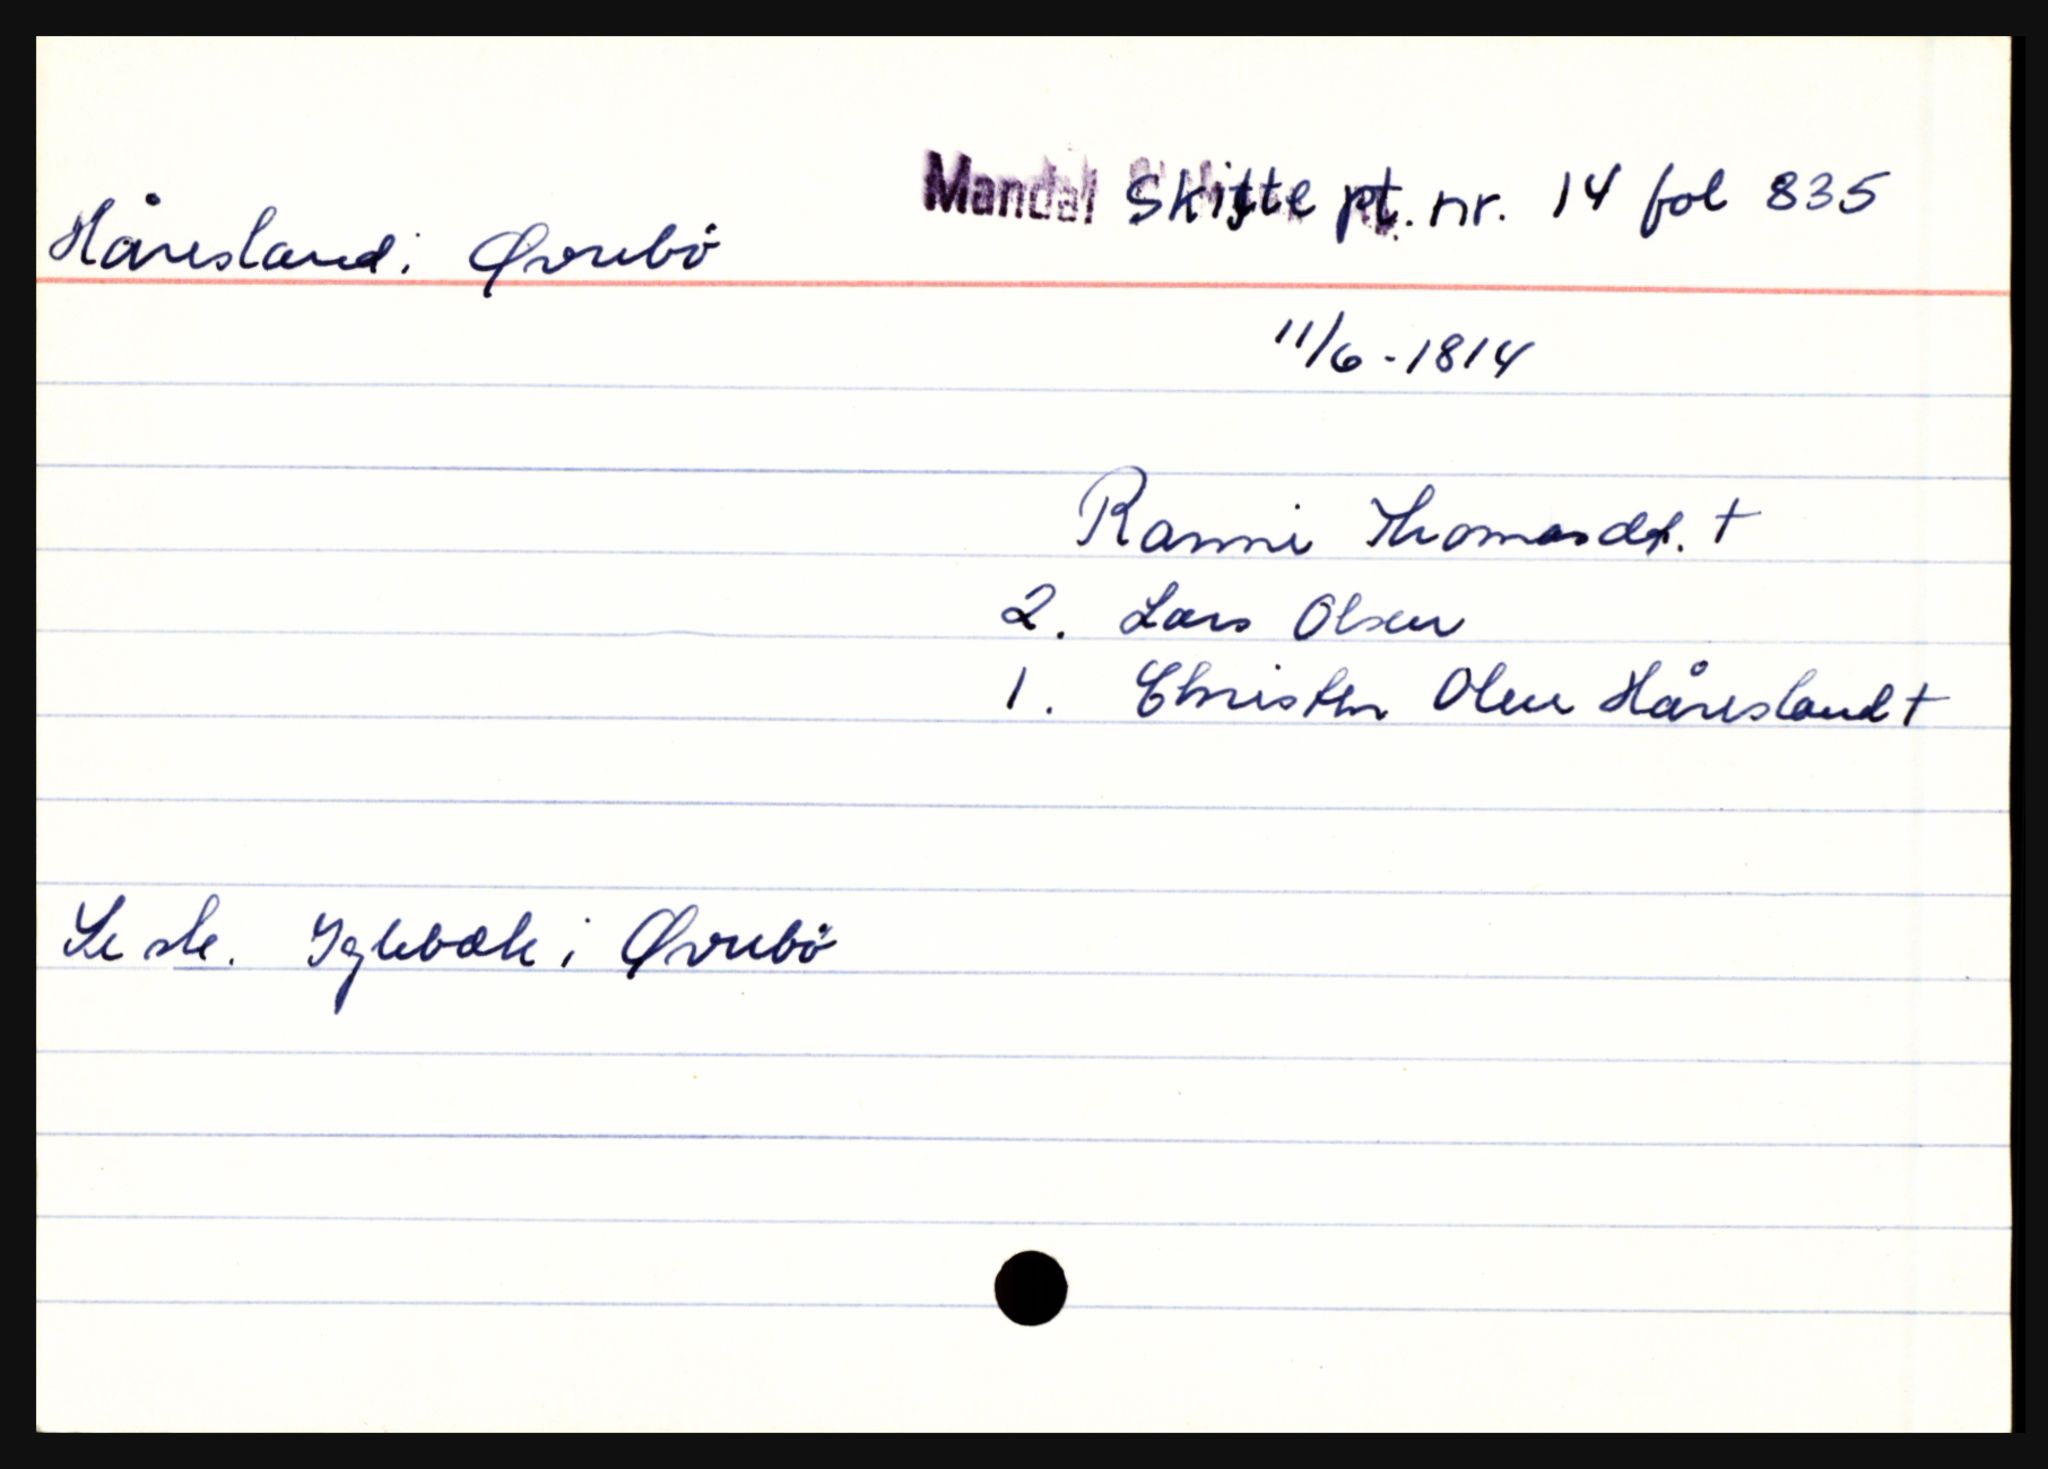 Mandal Skifte pt. nr. 14 fol 835
Håresland i Øvrebö
11/6 - 1814
Ranni Thomasdt. †
2. Lars Olsen
1. Christen Olsen Håresland †
Se sk. Iglebæk i Øvrebö